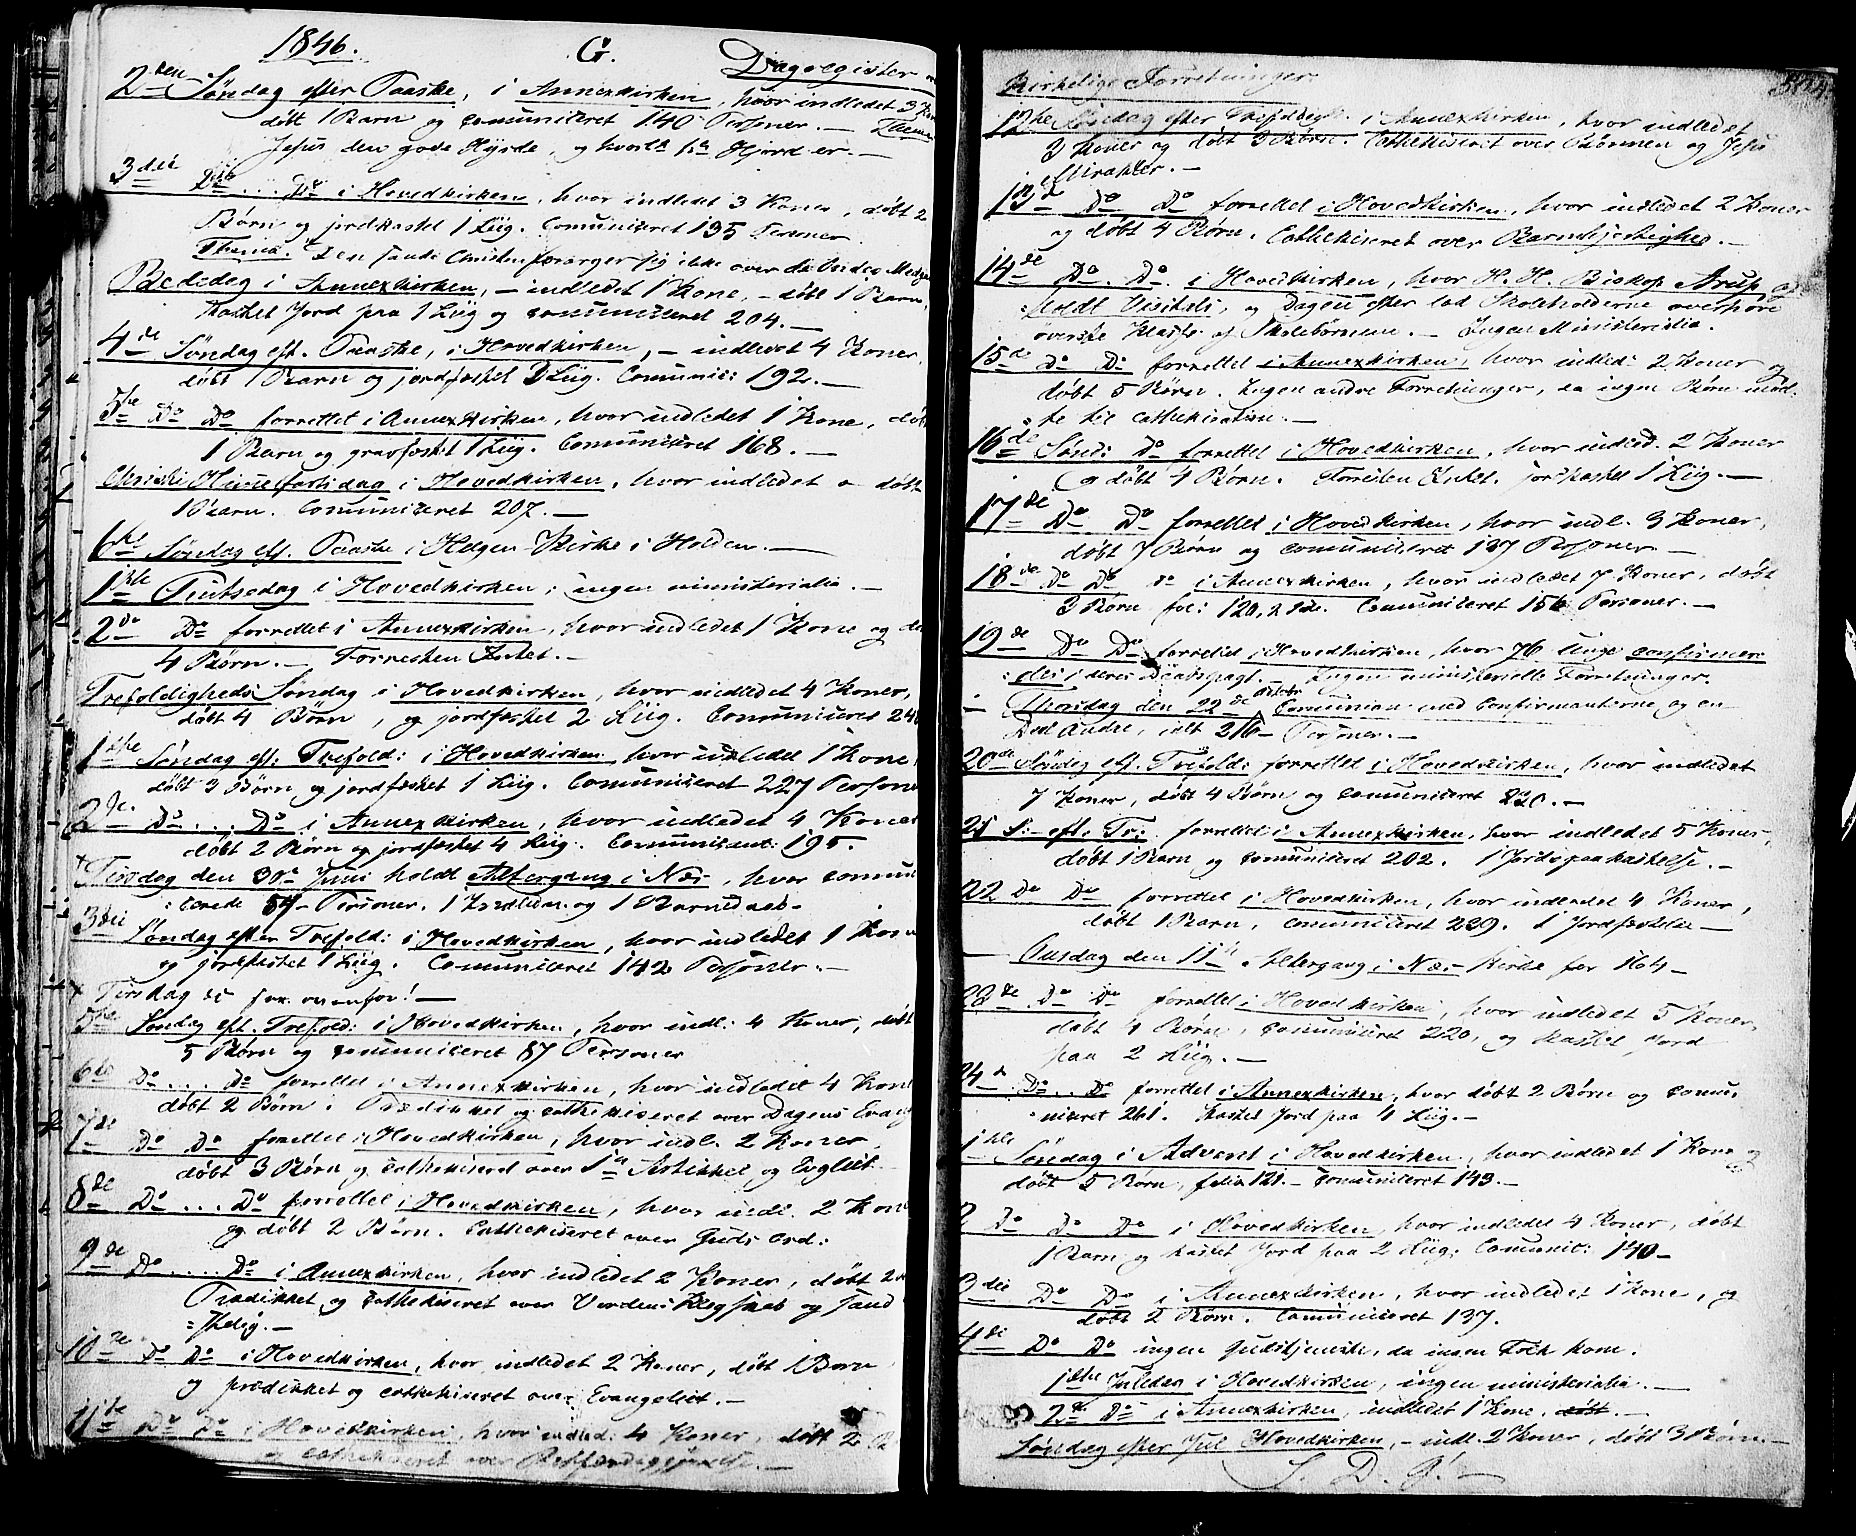 1846. G. Dagregister
2den Søndag efter Paaske, i Annexkirken, hvor indledet 3
døbt 1 Barn og comuniceret 140 Personer. — Thema
Jesus den gode Hyrde, og hvorl. hs Hjord er. —
3die Do ... Do i Hovedkirken, hvor indledet 3 Koner, døbt 2
Børn og jordkastet 1 Liig. Comuniceret 135 Personer.
Thema. Den sande Christen forarger sig ikke over
Bededag i Annexkirken, — indledet 1 Kone, — døbt 1 Barn,
kastet Jord paa 1 Liig og comuniceret 204. —
4de Søndag eft. Paaske, i Hovedkirken, — indledet 4 Koner,
døbt 1 Barn og jordfæstet Liig. Comunic: 192. —
5te Do Do forrettet i Annexkirken, hvor indledet 1 Kone, døbt
1 Barn og gravfæstet 1 Liig. Comuniceret 168. —
Christi Himelfartsdag i Hovedkirken, hvor indledet o døbt
1 Barn. Comuniceret 207. —
6te Søndag eft. Paaske i Helgen Kirke i Holden. —
1ste Pintsedag i Hovedkirken; ingen ministerialia. —
2de Do forrettet i Annexkirken, hvor indledet 1 Kone og
4 Børn. — Forresten Intet. —
Trefoldigheds Søndag i Hovedkirken, hvor indledet 4 Koner,
døbt 4 Børn, og jordfæstet 2 Liig. Comuniceret
1ste Søndag eft. Trefold: i Hovedkirken hvor indledet 1 Kone,
døbt 3 Børn og jordfæstet 1 Liig. Comuniceret 227 Persone
2de. Do ... Do i Annexkirken, hvor indledet 4 Koner
døbt 2 Børn og jordfæstet 4 Liig. Comunicant: 195.
+ Tirsdag den 30te Juni holdt Altergang i Næs, hvor comuni
:cerede 54 Personer. 1 og 1 Barnedaab.
3die Søndag efter Trefold: i Hovedkirken, hvor indledet 1 Kone
og jordfæstet 1 Liig. Comuniceret 142 Personer. —
+ Tirsdag ovenfor! —
5te Søndag eft. Trefold: i Hovedkirken, hvor indl: 4 Koner, døbt
5 Børn og comuniceret 87 Personer
6te Do ... Do forrettet i Annexkirken, hvor indledet 4 Kone
døbt 2 Børn. Prædikket og cathekiseret over Dagens Evang
7de Do Do forrettet i Hovedkirken, hvor indl. 2 Koner
døbt 3 Børn og cathekiseret over Artikkel og Evgliet.
8de Do ... Do forrettet i Hovedkirken, hvor indl. 2 Kone
og døbt 2 Børn. Cathekiseret over Guds Ord.
9de Do .... Do i Annexkirken, hvor indledet 2 Koner, døbt 2
Prædikket og cathekiseret over Verdens Klogskab og sand
=skelig. —
10de Do Do i Hovedkirken, hvor indledet 2 Koner, døbt 1 Barn
og prædikket og cathekiseret over Evangeliet. —
11te Do Do i Hovedkirken, hvor indled: 4 Koner, døbt 2
og cathekiseret over Retfærdiggjørelse. —
Kirkelige Forretninger.
12te Søndag efter Trefoldigh: i Annexkirken, hvor indledet
3 Koner og døbt 3 Børn. Cathekiseret over Bønnen og Jesu
Mirakler. —
13de Do Do forrettet i Hovedkirken, hvor indledet 2 Koner
og døbt 4 Børn. Cathekiseret over Barmhjertighed. —
14de Do. Do. i Hovedkirken, hvor H. H. Biskop Arup
holdt Visitats, og Dagen efter lod Skoleholderne overhøre
øverste Klasse af Skolebørnene. — Ingen Ministerialia.
15de Do Do forrettet i Annexkirken, hvor indled: 2 Koner og
døbt 5 Børn. Ingen andre Forretninger, da ingen Børn mød-
=te til Cathekisation. —
16de Sønd: Do forrettet i Hovedkirken, hvor indled. 2 Koner
og døbt 4 Børn. Forresten Enkelt. jordkastet 1 Liig. —
17de Do Do forrettet i Hovedkirken, hvor indl. 3 Koner,
døbt 7 Børn og comuniceret 137 Personer —
18de Do Do i Annexkirken, hvor indledet 7 Koner, døbt
3 Børn fol: 120, Comuniceret 156 Personer. —
19de Do Do forrettet i Hovedkirken, hvor 76 Unge confirmere
:des i deres Daabspagt. — Ingen ministerielle Forretninger.
— Thorsdag den 22de Oktobr Comunion med Confirmanterne og en
Deel Andre, ialt 216 Personer. —
20de Søndag eft. Trefold: forrettet i Hovedkirken, hvor indledet
7 Koner, døbt 4 Børn og comuniceret 220. —
21 S: eft. Tr: forrettet i Annexkirken, hvor indledet 5 Koner,
døbt 1 Barn og comuniceret 202. 1 Jordspaakastelse. —
22 Do Do forrettet i Hovedkirken, hvor indledet 4 Koner,
døbt 1 Barn, comuniceret 229. 1 Jordfæstelse —
— Onsdag den 11te Altergang i Næs Kirke for 164 —
23de Do Do forrettet i Hovedkirken, hvor indledet 5 Koner,
døbt 4 Børn, comuniceret 220, og kastet Jord
paa 2 Liig. —
24de Do.. Do forrettet i Annexkirken, hvor døbt 2 Børn og comu-
niceret 261. Kastet Jord paa 4 Liig. —
1ste Søndag i Advent i Hovedkirken, hvor indledet 1 Kone og
døbt 5 Børn, folio 121. — Comuniceret 143. —
2 Do Do Do i Hovedkirken, hvor indledet 4 Koner, døbt
1 Barn og kastet Jord paa 2 Liig: Comunic: 140 —
3die Do Do i Annexkirken, hvor indledet 1 Kone, og
døbt 2 Børn. Comuniceret 137.
4de Do Do ingen Gudstjeneste, da ingen Folk kom.
1ste Juledag i Hovedkirken, ingen ministerialia. —
2d Do i Annexkirken, indledet 1 Kone. —
Søndag efter Jul Hovedkirken, — indl. 2 Koner, døbt 3 Børn. —
S. D. G! —